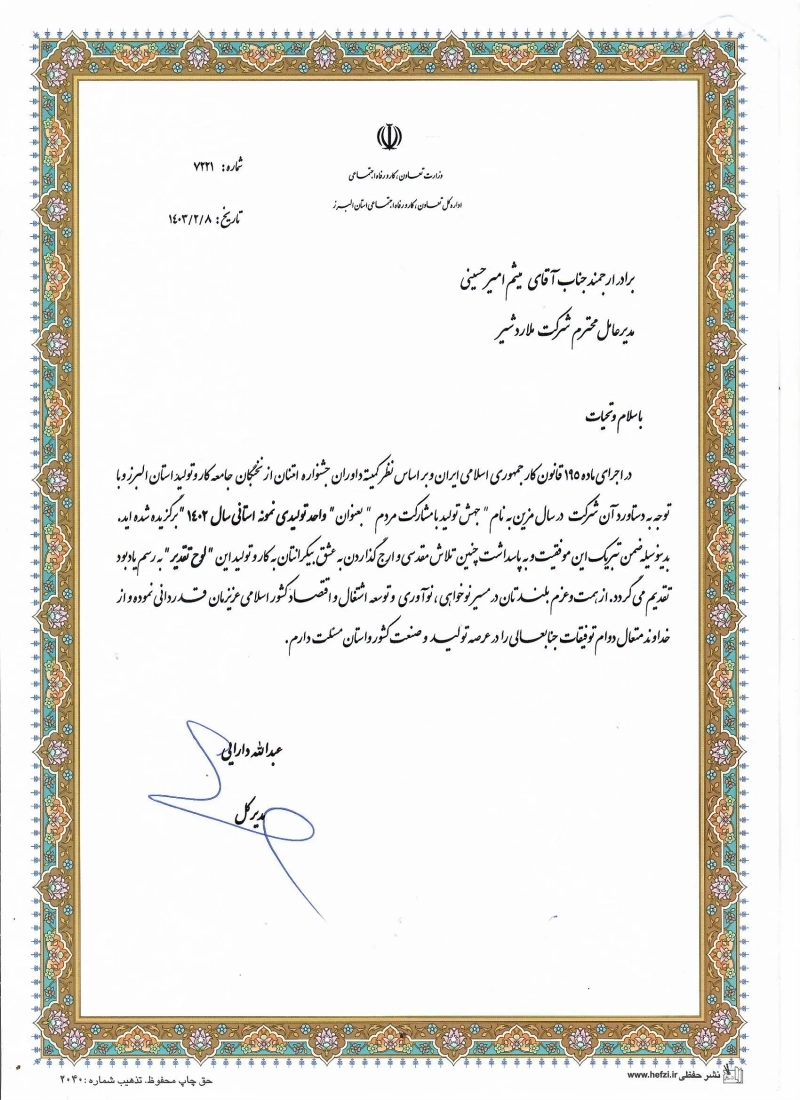 وزارت تعاون، کار و رفاه اجتماعی
اداره کل تعاون، کار و رفاه اجتماعی استان البرز
شماره: ۷۲۲۱
تاریخ: ۱۴۰۳/۲/۸
برادر ارجمند جناب آقای میثم امیرحسینی
مدیرعامل محترم شرکت ملارد شیر
با سلام و تحیات
در اجرای ماده ۱۹۵ قانون کار جمهوری اسلامی ایران و بر اساس نظر کمیته داوران جشنواره امتنان از نخبگان جامعه کار و تولید استان البرز و با
توجه به دستاورد آن شرکت در سال مزین به نام " جهش تولید با مشارکت مردم " بعنوان " واحد تولیدی نمونه استانی سال ۱۴۰۲ " برگزیده شده اید.
بدینوسیله ضمن تبریک این موفقیت و به پاسداشت چنین تلاش مقدسی و ارج گذاردن به عشق بیکرانتان به کار و تولید این " لوح تقدیر " به رسم یادبود
تقدیم می گردد. از همت و عزم بلندتان در مسیر نوخواهی، نوآوری و توسعه اشتغال و اقتصاد کشور اسلامی عزیزمان قدردانی نموده و از
خداوند متعال دوام توفیقات جنابعالی را در عرصه تولید و صنعت کشور و استان مسئلت دارم.
عبدالله دارایی
مدیرکل
نشر حفظی www.hefzi.ir
حق چاپ محفوظ. تذهیب شماره: ۲۰۴۰